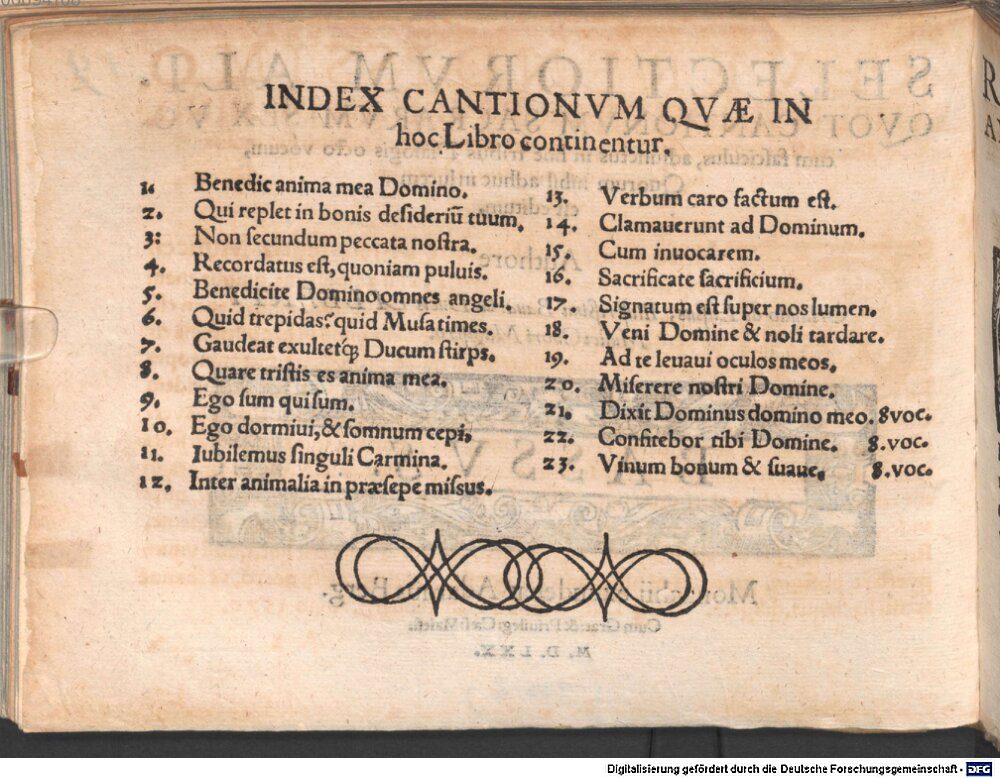 INDEX CANTIONVM QVÆ IN
hoc Libro continentur.
1. Benedic anima mea Domino.
2. Qui replet in bonis desideriū tuum.
3: Non secundum peccata nostra.
4. Recordatus est, quoniam puluis.
5. Benedicite Domino omnes angeli.
6. Quid trepidas? quid Musa times.
7. Gaudeat exultetq́; Ducum stirps.
8. Quare tristis es anima mea.
9. Ego sum qui sum.
10. Ego dormiui, & somnum cepi,
11. Iubilemus singuli Carmina.
12. Inter animalia in præsepe missus.
13. Verbum caro factum est.
14. Clamauerunt ad Dominum.
15. Cum inuocarem.
16. Sacrificate sacrificium.
17. Signatum est super nos lumen.
18. Veni Domine & noli tardare.
19. Ad te leuaui oculos meos.
20. Miserere nostri Domine.
21. Dixit Dominus domino meo. 8 voc.
22. Confitebor tibi Domine. 8. voc.
23. Vinum bonum & suaue. 8. voc.
Digitalisierung gefördert durch die Deutsche Forschungsgemeinschaft - DFG